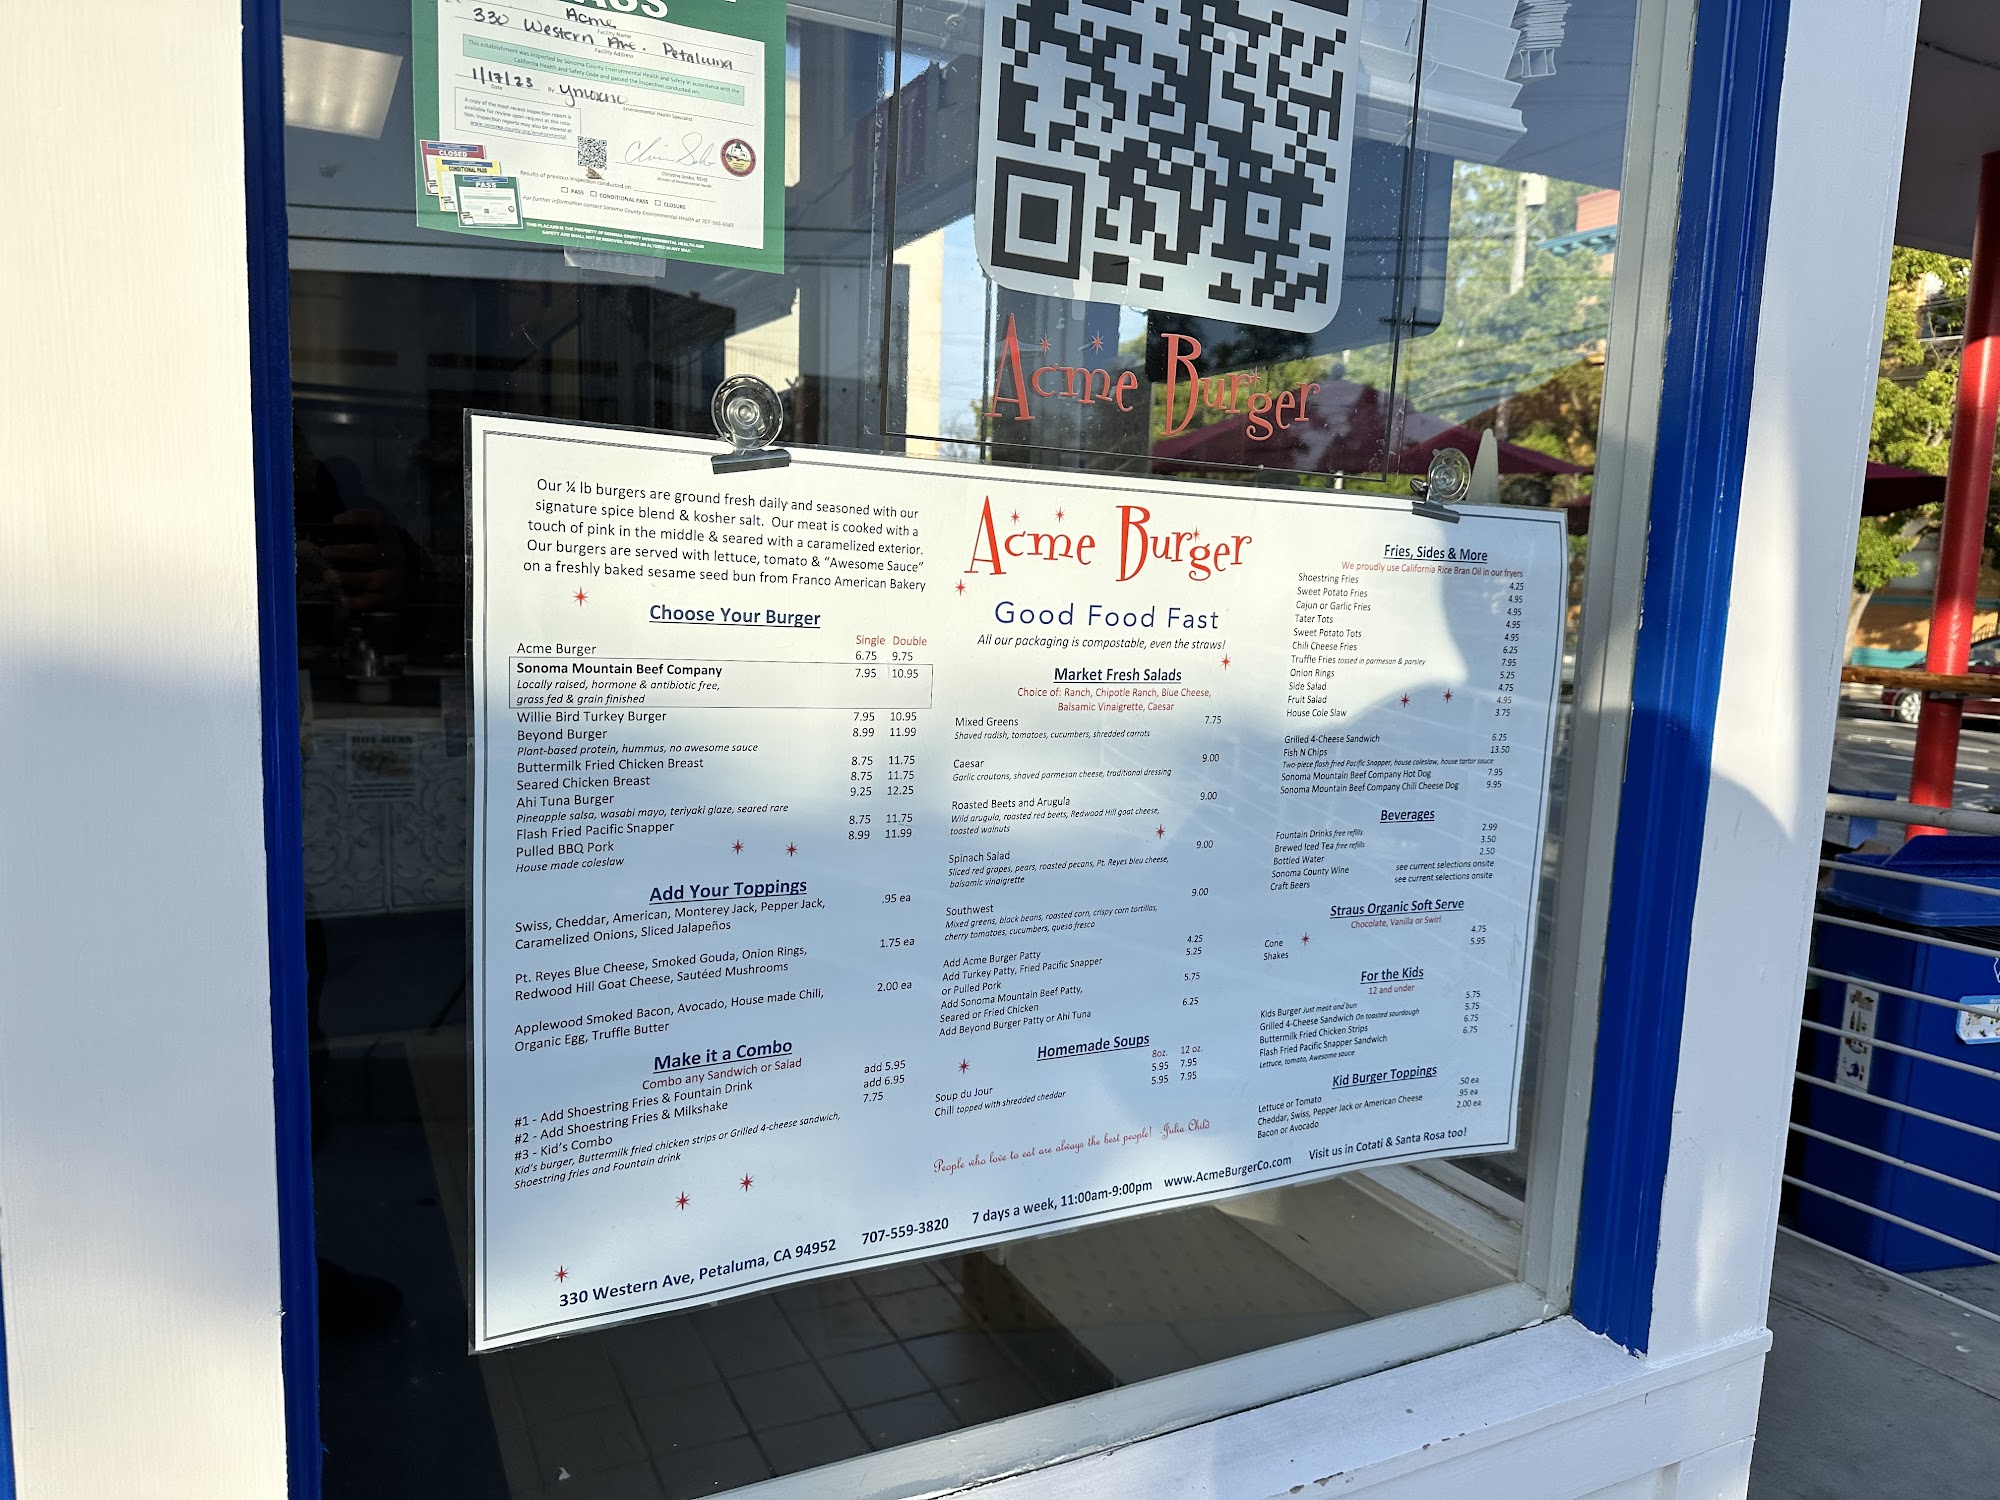 Acme
Facility Name
330 Western Ave. Petaluma
Facility Address
This establishment was inspected by Sonoma County Environmental Health and Safety in accordance with the
California Health and Safety Code and passed the inspection conducted on:
1/17/23
Date
By
Environmental Health Specialist
A copy of the most recent inspection report is
available for review upon request at this loca-
tion. Inspection reports may also be viewed at
www.sonoma-county.org/environmental
CLOSED
CONDITIONAL PASS
PASS
Results of previous inspection conducted on:
☐ PASS ☐ CONDITIONAL PASS ☐ CLOSURE
For further information contact Sonoma County Environmental Health at 707-565-6565
THIS PLACARD IS THE PROPERTY OF SONOMA COUNTY ENVIRONMENTAL HEALTH AND
SAFETY AND SHALL NOT BE REMOVED, COPIED OR ALTERED IN ANY WAY.
Acme Burger
Our ¼ lb burgers are ground fresh daily and seasoned with our
signature spice blend & kosher salt. Our meat is cooked with a
touch of pink in the middle & seared with a caramelized exterior.
Our burgers are served with lettuce, tomato & "Awesome Sauce"
on a freshly baked sesame seed bun from Franco American Bakery
Choose Your Burger
Single Double
Acme Burger 6.75 9.75
Sonoma Mountain Beef Company 7.95 10.95
Locally raised, hormone & antibiotic free,
grass fed & grain finished
Willie Bird Turkey Burger 7.95 10.95
Beyond Burger 8.99 11.99
Plant-based protein, hummus, no awesome sauce
Buttermilk Fried Chicken Breast 8.75 11.75
Seared Chicken Breast 8.75 11.75
Ahi Tuna Burger 9.25 12.25
Pineapple salsa, wasabi mayo, teriyaki glaze, seared rare
Flash Fried Pacific Snapper 8.75 11.75
Pulled BBQ Pork 8.99 11.99
House made coleslaw
Add Your Toppings
Swiss, Cheddar, American, Monterey Jack, Pepper Jack, .95 ea
Caramelized Onions, Sliced Jalapeños
Pt. Reyes Blue Cheese, Smoked Gouda, Onion Rings, 1.75 ea
Redwood Hill Goat Cheese, Sautéed Mushrooms
Applewood Smoked Bacon, Avocado, House made Chili, 2.00 ea
Organic Egg, Truffle Butter
Make it a Combo
Combo any Sandwich or Salad
#1 - Add Shoestring Fries & Fountain Drink add 5.95
#2 - Add Shoestring Fries & Milkshake add 6.95
#3 - Kid's Combo 7.75
Kid's burger, Buttermilk fried chicken strips or Grilled 4-cheese sandwich,
Shoestring fries and Fountain drink
Acme Burger
Good Food Fast
All our packaging is compostable, even the straws!
Market Fresh Salads
Choice of: Ranch, Chipotle Ranch, Blue Cheese,
Balsamic Vinaigrette, Caesar
Mixed Greens 7.75
Shaved radish, tomatoes, cucumbers, shredded carrots
Caesar 9.00
Garlic croutons, shaved parmesan cheese, traditional dressing
Roasted Beets and Arugula 9.00
Wild arugula, roasted red beets, Redwood Hill goat cheese,
toasted walnuts
Spinach Salad 9.00
Sliced red grapes, pears, roasted pecans, Pt. Reyes bleu cheese,
balsamic vinaigrette
Southwest 9.00
Mixed greens, black beans, roasted corn, crispy corn tortillas,
cherry tomatoes, cucumbers, queso fresco
Add Acme Burger Patty 4.25
Add Turkey Patty, Fried Pacific Snapper 5.25
or Pulled Pork
Add Sonoma Mountain Beef Patty, 5.75
Seared or Fried Chicken
Add Beyond Burger Patty or Ahi Tuna 6.25
Homemade Soups
8oz. 12 oz.
Soup du Jour 5.95 7.95
Chili topped with shredded cheddar 5.95 7.95
People who love to eat are always the best people! -Julia Child
Fries, Sides & More
We proudly use California Rice Bran Oil in our fryers
Shoestring Fries 4.25
Sweet Potato Fries 4.95
Cajun or Garlic Fries 4.95
Tater Tots 4.95
Sweet Potato Tots 4.95
Chili Cheese Fries 6.25
Truffle Fries tossed in parmesan & parsley 7.95
Onion Rings 5.25
Side Salad 4.75
Fruit Salad 4.95
House Cole Slaw 3.75
Grilled 4-Cheese Sandwich 6.25
Fish N Chips 13.50
Two-piece flash fried Pacific Snapper, house coleslaw, house tartar sauce
Sonoma Mountain Beef Company Hot Dog 7.95
Sonoma Mountain Beef Company Chili Cheese Dog 9.95
Beverages
Fountain Drinks free refills 2.99
Brewed Iced Tea free refills 3.50
Bottled Water 2.50
Sonoma County Wine see current selections onsite
Craft Beers see current selections onsite
Straus Organic Soft Serve
Chocolate, Vanilla or Swirl
Cone 4.75
Shakes 5.95
For the Kids
12 and under
Kids Burger Just meat and bun 5.75
Grilled 4-Cheese Sandwich On toasted sourdough 5.75
Buttermilk Fried Chicken Strips 6.75
Flash Fried Pacific Snapper Sandwich 6.75
Lettuce, tomato, Awesome sauce
Kid Burger Toppings
Lettuce or Tomato .50 ea
Cheddar, Swiss, Pepper Jack or American Cheese .95 ea
Bacon or Avocado 2.00 ea
330 Western Ave, Petaluma, CA 94952 707-559-3820 7 days a week, 11:00am-9:00pm www.AcmeBurgerCo.com Visit us in Cotati & Santa Rosa too!